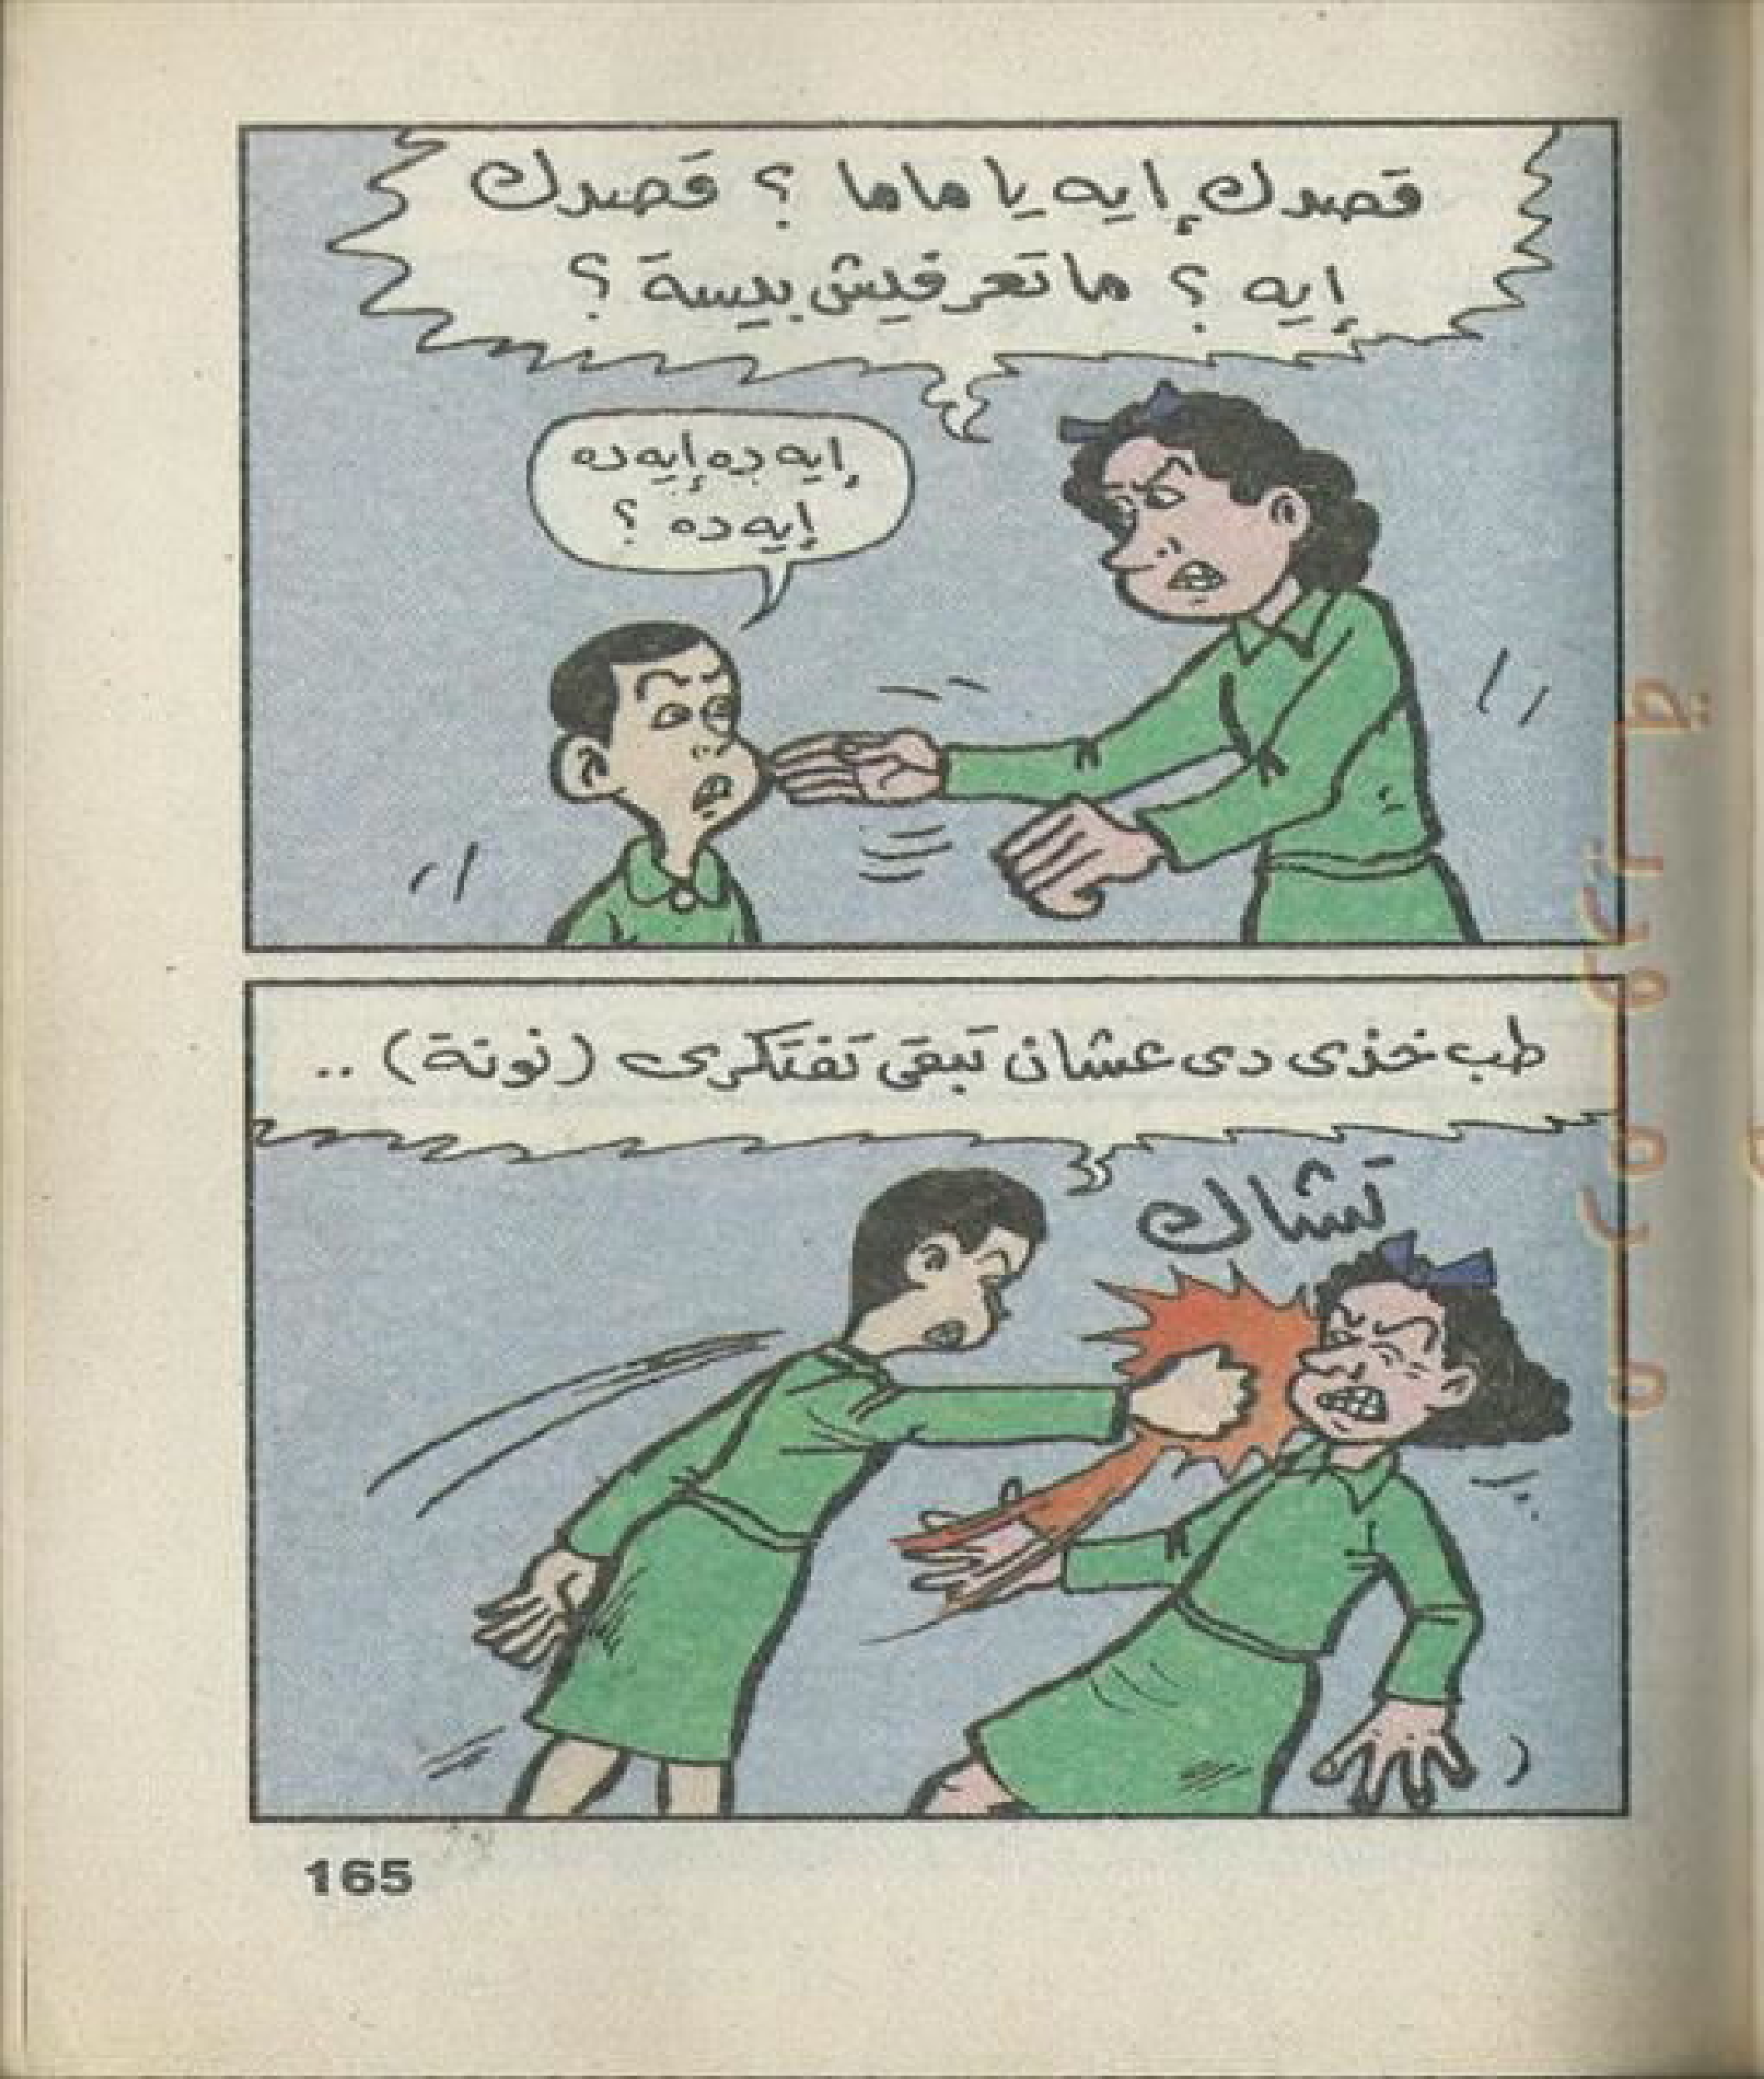 قصدك إيه يا ماما ؟ قصدك
إيه ؟ ما تعرفيش بيسة ؟
إيه ده إيه ده
إيه ده ؟
طب خذى دى عشان تبقى تفتكرى (نونة) ..
تشاك
165